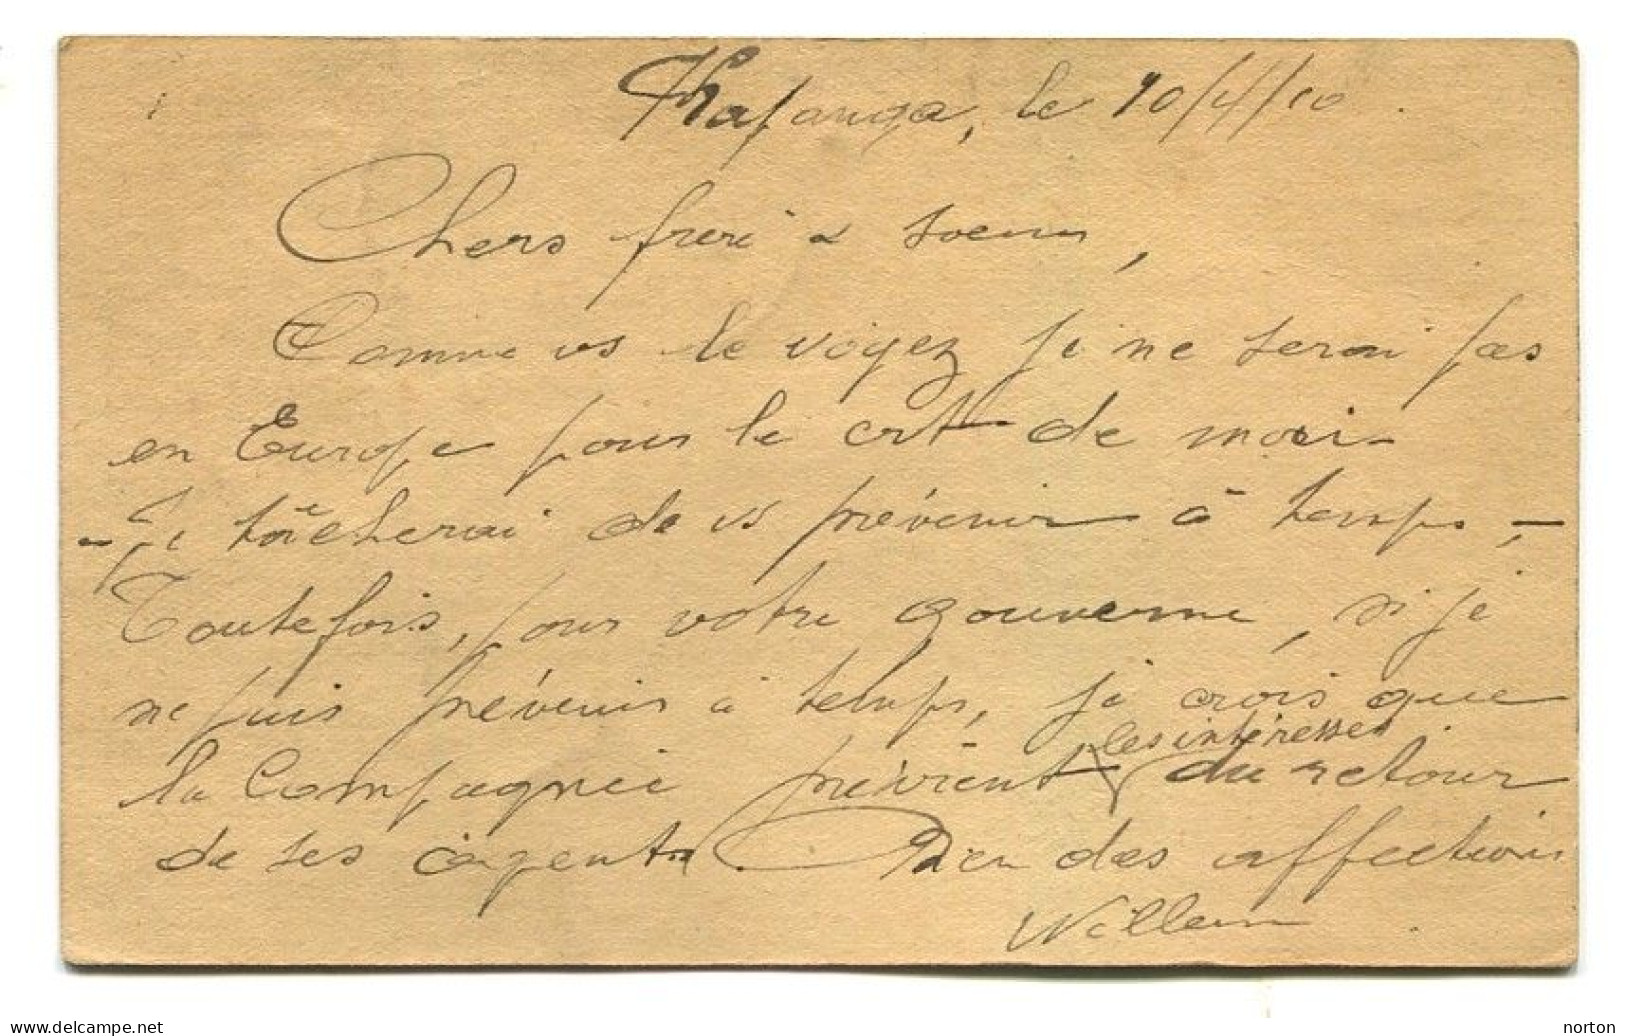 Kafanga, le 10/4/10.
Chers frère & soeur,
Comme vs le voyez je ne serai pas
en Europe pour le crt de mois
- Je tâcherai de vs prévenir à temps, -
Toutefois, pour votre gouverne, si je
ne puis prévenir à temps, je crois que
la Compagnie prévient les intéressés du retour
de ses agents. Bien des affections
Willem
www.delcampe.net
norton